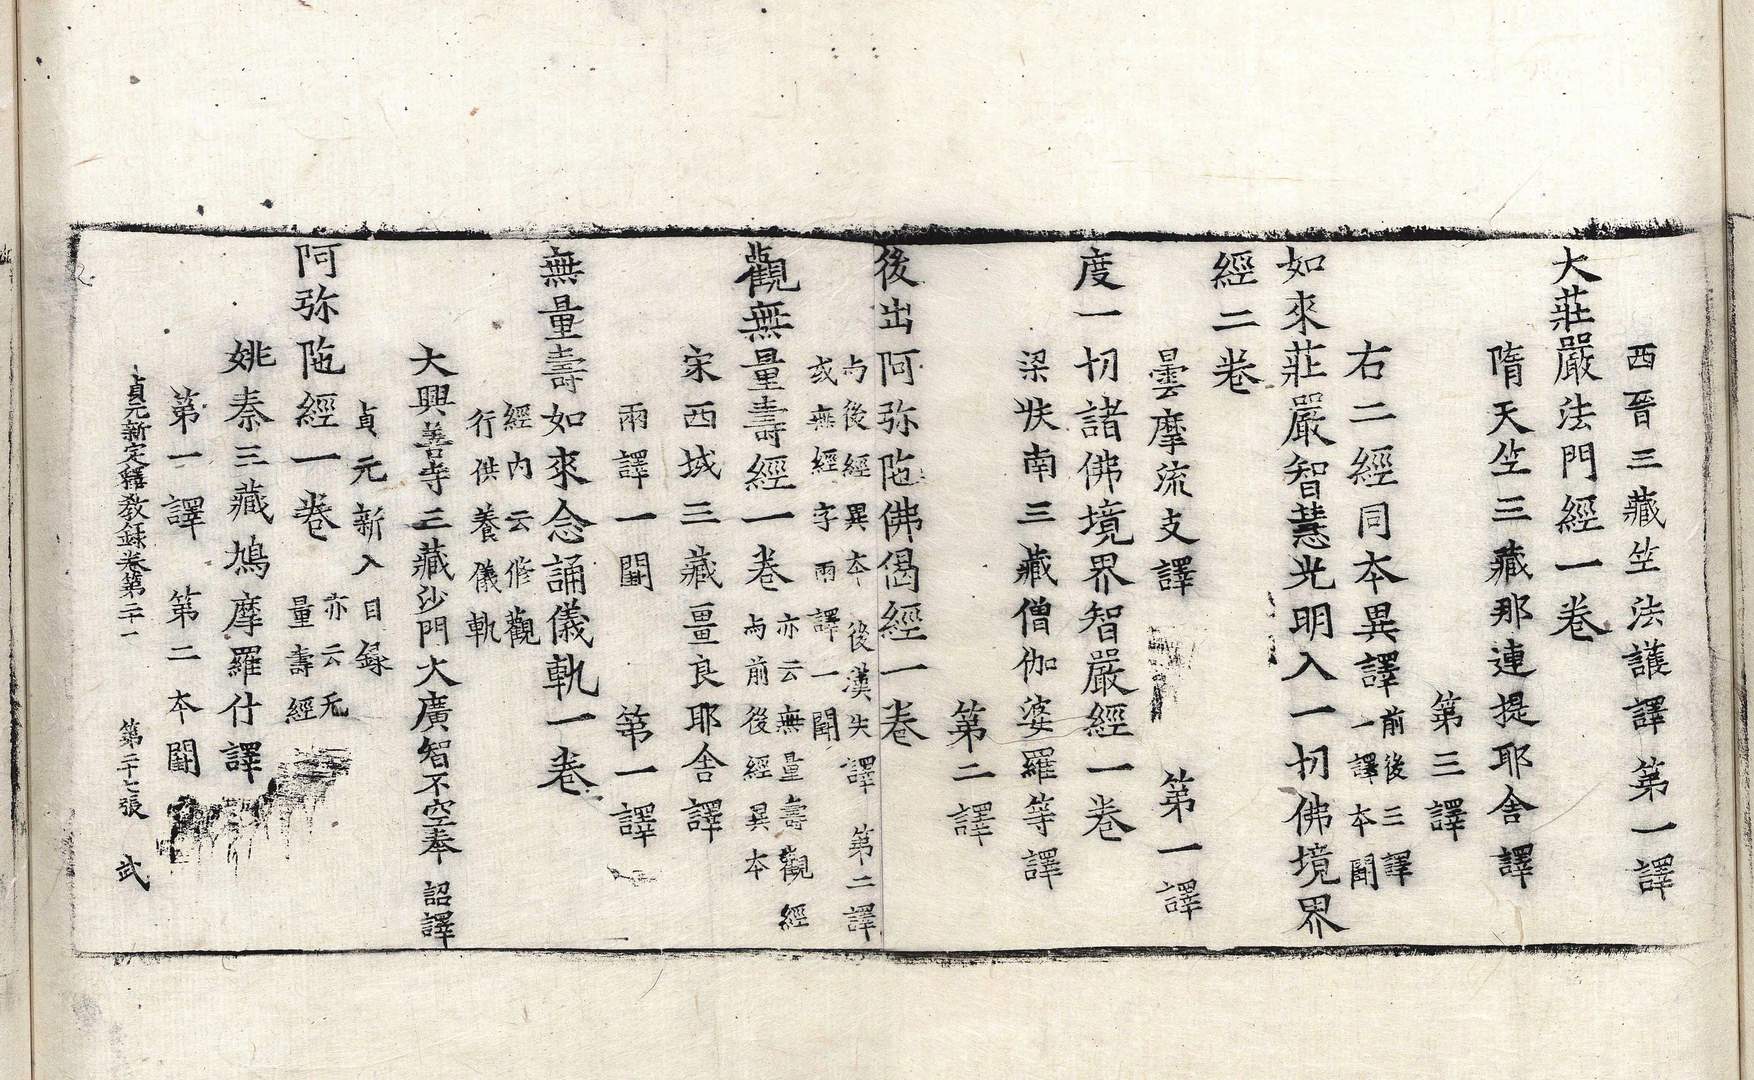 西晉三藏竺法護譯第一譯
大莊嚴法門經一卷
隋天竺三藏那連提耶舍譯
第三譯
右二經同本異譯前後三譯
一譯本闕
如來莊嚴智慧光明入一切佛境界
經二卷
曇摩流支譯 第一譯
度一切諸佛境界智嚴經一卷
梁扶南三藏僧伽婆羅等譯
第二譯
後出阿弥陁佛偈經一卷
与後經異本 後漢失譯 第二譯
或無經字兩譯一闕
觀無量壽經一卷亦云無量壽觀經
与前後經異本
宋西域三藏畺良耶舍譯
兩譯一闕 第一譯
無量壽如來念誦儀軌一卷
經內云修觀
行供養儀軌
大興善寺三藏沙門大廣智不空奉 詔譯
貞元新入目録
阿弥陁經一卷 亦云无
量壽經
姚秦三藏鳩摩羅什譯
第一譯 第二本闕
貞元新定釋教録卷第二十一 第二十七張 武